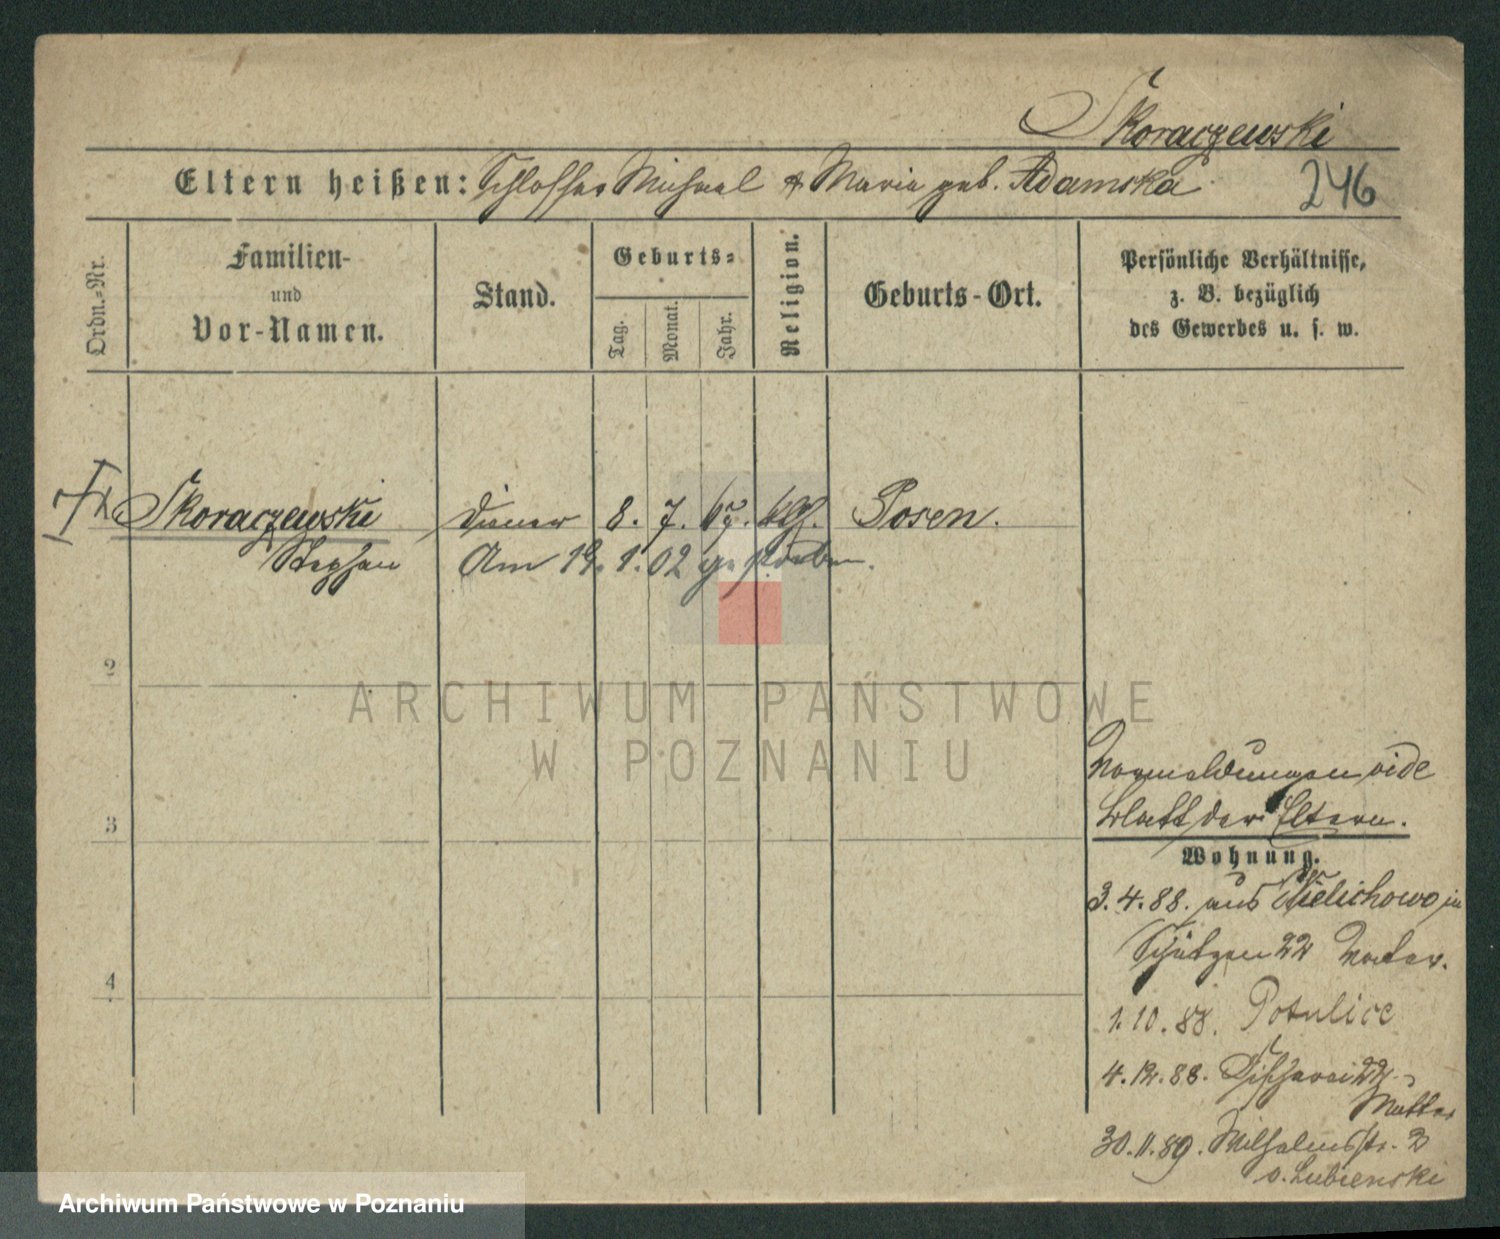 Skoraczewski
Eltern heißen: Schlosser Michael & Maria geb. Adamska
246
Ordn.-Nr.
Familien-
und
Vor-Namen.
Stand.
Geburts-
Tag.
Monat.
Jahr.
Religion.
Geburts-Ort.
Persönliche Verhältnisse,
z. B. bezüglich
des Gewerbes u. s. w.
Skoraczewski Diener 8. 7. 67. kth. Posen.
Stephan Am 19. 1. 02 gestorben.
2
ARCHIWUM PAŃSTWOWE
W POZNANIU
3
4
Vormeldungen vide
Blatt der Eltern.
Wohnung.
3.4.88. aus Wielichowo in
Schützen 22 Vater.
1.10.88. Potulice
4.12.88. Fischerei 22
Mutter
30.11.89. Wilhelmstr. 2
v. Lubienski
Archiwum Państwowe w Poznaniu